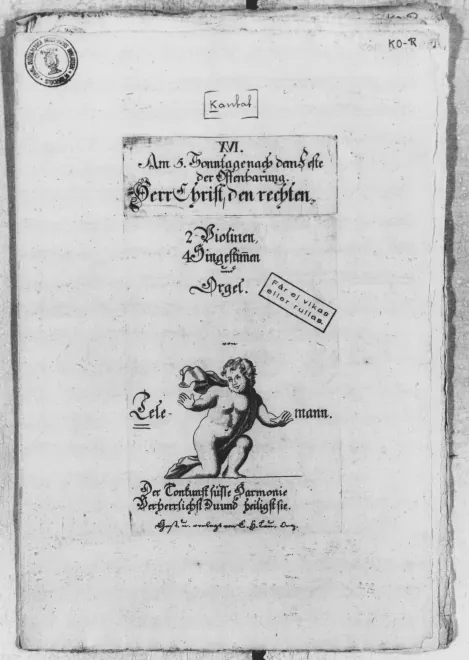 KO-R
Kantat
XVI.
Am 5. Sonntage nach dem Feste
der Offenbarung.
Herr Christ, den rechten,
2 Violinen,
4 Singestimen
und
Orgel.
Får ej vikas
eller rullas.
von
Tele- mann.
Der Tonkunst süsse Harmonie
Verherrlichst Du und heiligst sie.